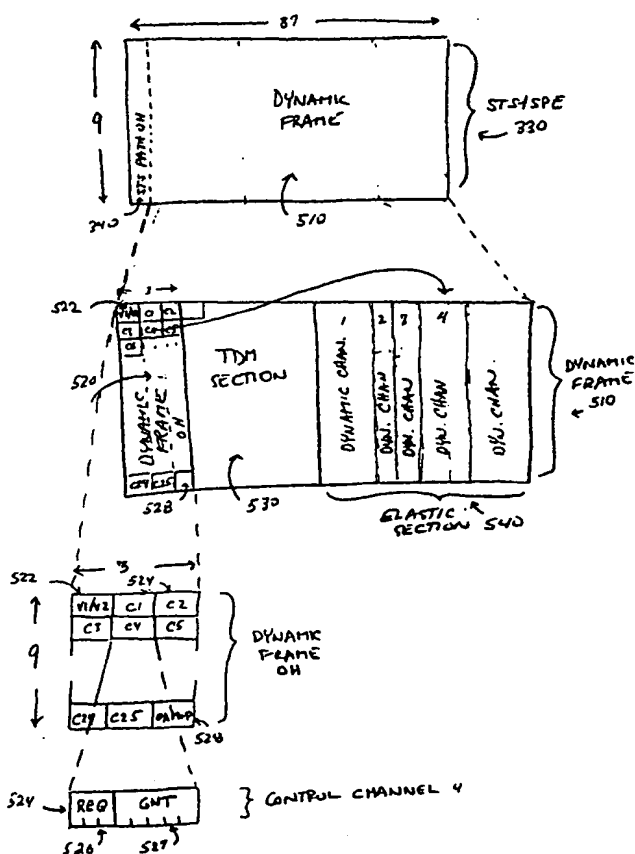 87
9
STS PATH OH
DYNAMIC
FRAME
STS-1 SPE
330
340
510
522
3
V1/V2 C1 C2
C3 C4 C5
C6
520
DYNAMIC
FRAME
OH
C24 C25
528
TDM
SECTION
530
1
2
3
4
DYNAMIC CHAN.
DYN. CHAN
DYN. CHAN
DYN. CHAN
DYN. CHAN
DYNAMIC
FRAME
510
ELASTIC
SECTION 540
3
522
524
V1/V2 C1 C2
C3 C4 C5
9
DYNAMIC
FRAME
OH
C24 C25
528
524
REQ GNT
CONTROL CHANNEL 4
526
527